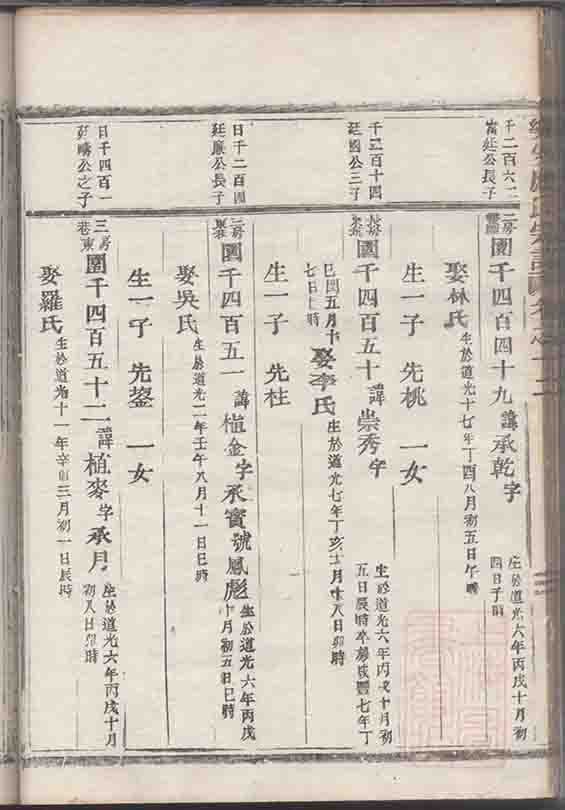 千二百六二
富廷公長子
二房
國千四百四十九諱承乾字
生於道光六年丙戌十月初
四日子時
娶林氏
生於道光十七年丁酉八月初五日午時
生一子 先桃 一女
千二百十四
廷國公三子
長房
國千四百五十諱崇秀字
生於道光六年丙戌十月初
五日辰時卒於咸豐七年丁
巳閏五月十
七日 時
娶李氏
生於道光七年丁亥十月廿八日卯時
生一子 先柱
日千二百四
廷廉公長子
二房
國千四百五一諱植金字承寶號鳳彪
生於道光六年丙戌
十月初五日巳時
娶吳氏
生於道光二年壬午八月十一日巳時
生一子 先鋆 一女
日千四百一
廷疇公之子
三房
巷東
國千四百五十二諱植麥字承月
生於道光六年丙戌十月
初八日卯時
娶羅氏
生於道光十一年辛卯三月初一日辰時